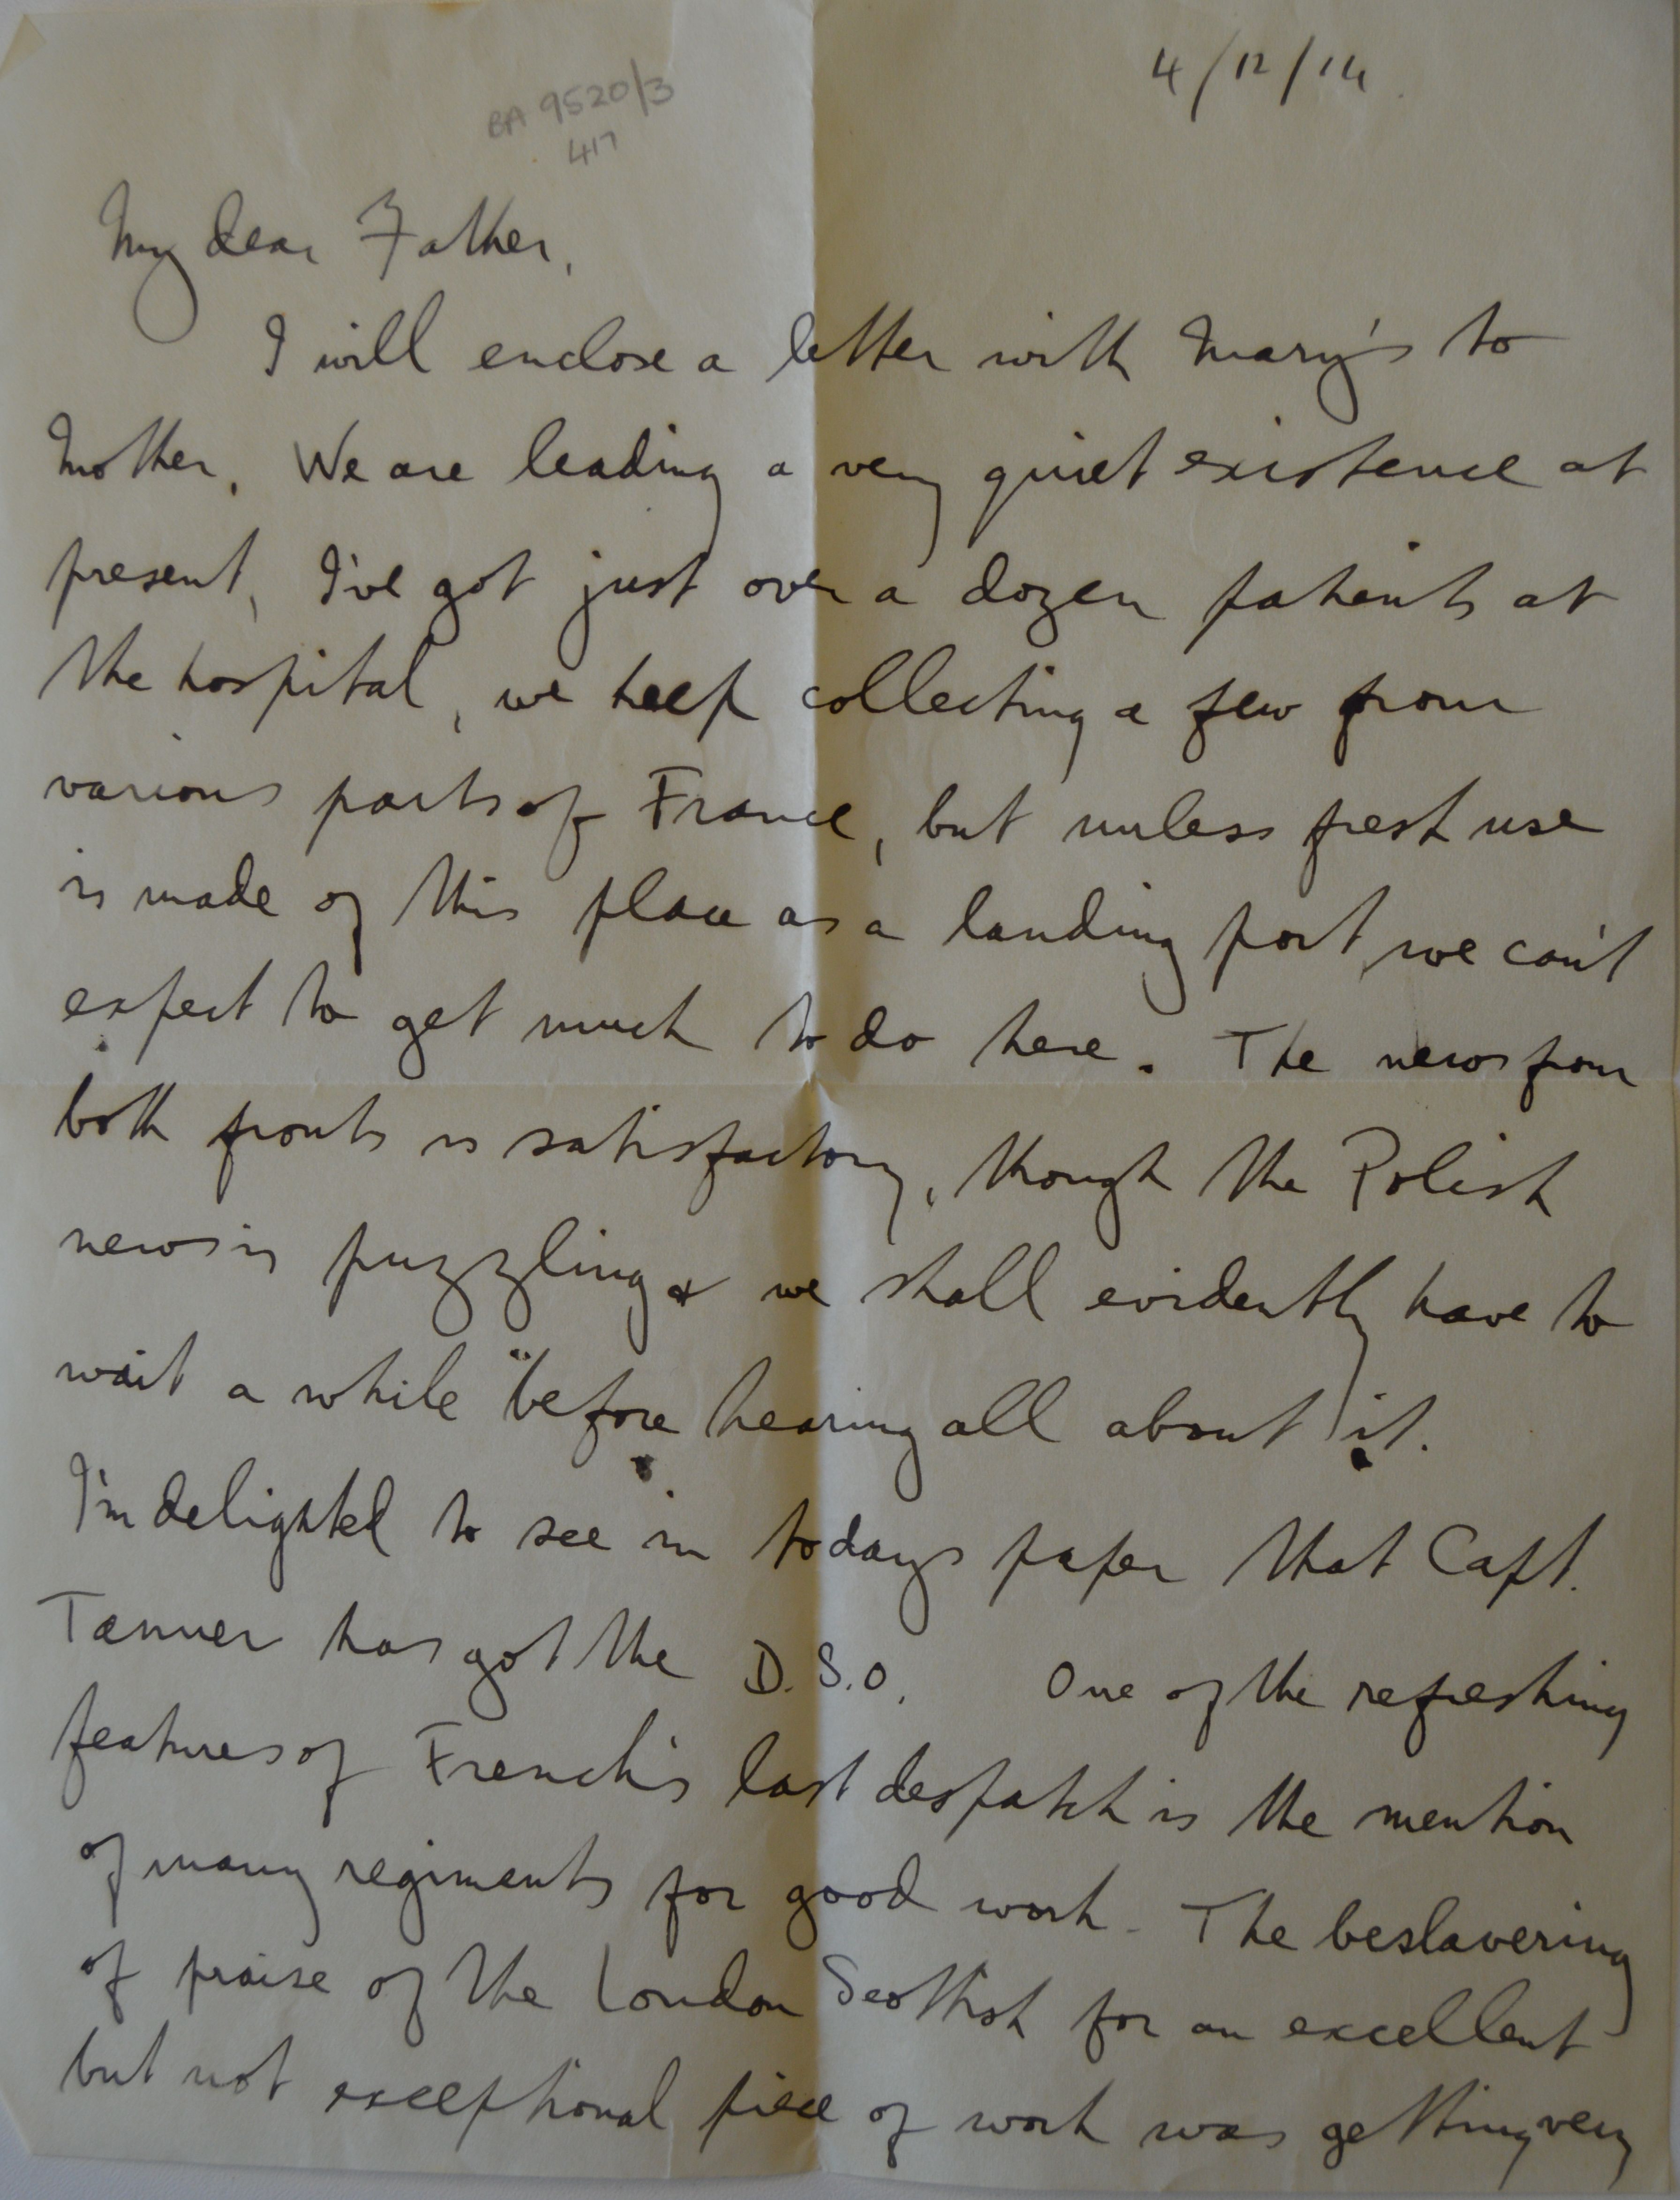 4/12/14
BA 9520/3
417
My dear Father,
I will enclose a letter with Mary's to
Mother. We are leading a very quiet existence at
present, I've got just over a dozen patients at
the hospital, we keep collecting a few from
various parts of France, but unless fresh use
is made of this place as a landing port, we can't
expect to get much to do here. The news from
both fronts is satisfactory, though the Polish
news is puzzling & we shall evidently have to
wait a while before hearing all about it.
I'm delighted to see in todays paper that Capt.
Tanner has got the D.S.O. One of the refreshing
features of French's last despatch is the mention
of many regiments for good work. The beslavering
of praise of the London Scottish for an excellent
but not exceptional piece of work was getting very